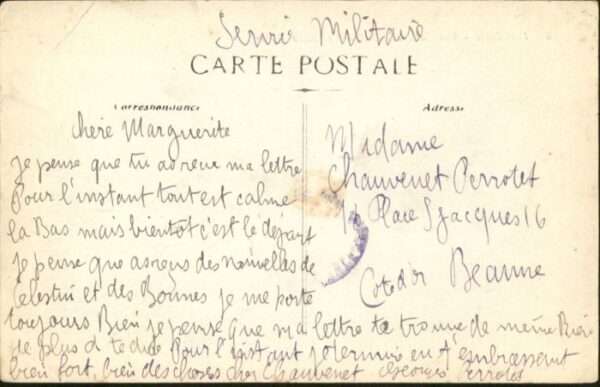 Servic Militaire
CARTE POSTALE
Correspondance
Adresse
chère Marguerite
je pense que tu as reçue ma lettre
Pour l'instant tout est calme
la Bas mais bientot c'est le départ
je pense que as reçus des nouvelles de
Celestin et des Bonnes je me porte
toujours Bien je pense que ma lettre te trouve de même Bien
de plus a te dire Pour l'instant je termine en t'embrassent
bien fort, bien des choses chez Chauvenet Georges Perrotet
Madame
Chauvenet Perrotet
16 Place S Jacques 16
Cote d'or Beaune